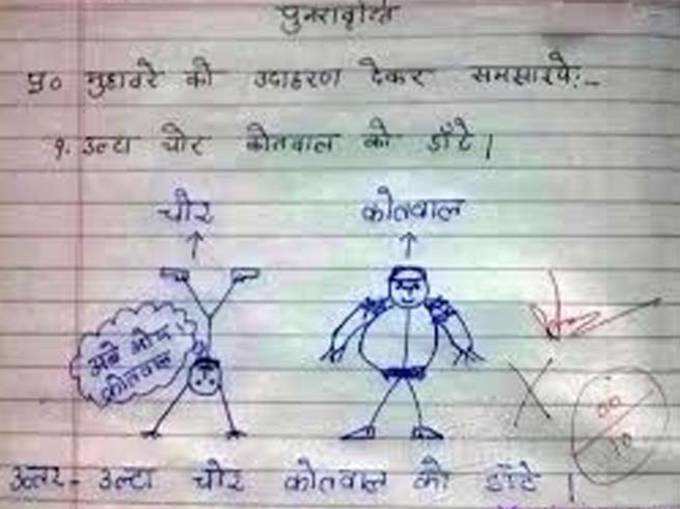 पुनरावृत्ति
प्र० मुहावरे को उदाहरण देकर समझाइये:-
१. उल्टा चोर कोतवाल को डाँटे ।
चोर कोतवाल
अबे ओय !
कोतवाल
00
10
उत्तर - उल्टा चोर कोतवाल को डाँटे ।